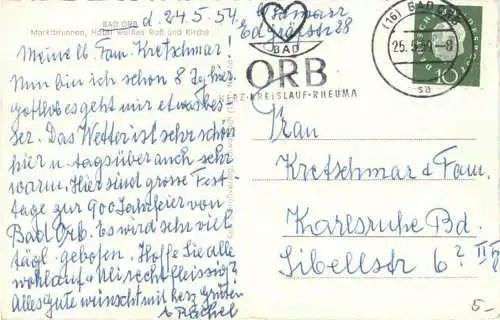 BAD ORB
Marktbrunnen, Hotel weißes Roß und Kirche
d. 24.5.54.
Edgräfstr 28
Meine lb. Fam. Kretschmar!
Nun bin ich schon 8 Tg hier,
gottlob es geht mir etwas bes-
ser. Das Wetter ist sehr schön
hier u. tagsüber auch sehr
warm. Hier sind grosse Fest-
tage zur 900 Jahrfeier von
Bad Orb. Es wird sehr viel
tägl. geboten. Hoffe Sie alle
wohlauf u. Uli recht fleissig?
Alles Gute wünscht mit herz. Grüßen
BAD
ORB
HERZ·KREISLAUF·RHEUMA
(16) BAD ORB
25.5. -8
sa
10
Frau
Kretschmar & Fam.
Karlsruhe Bd.
Sibellstr 6? III
5-